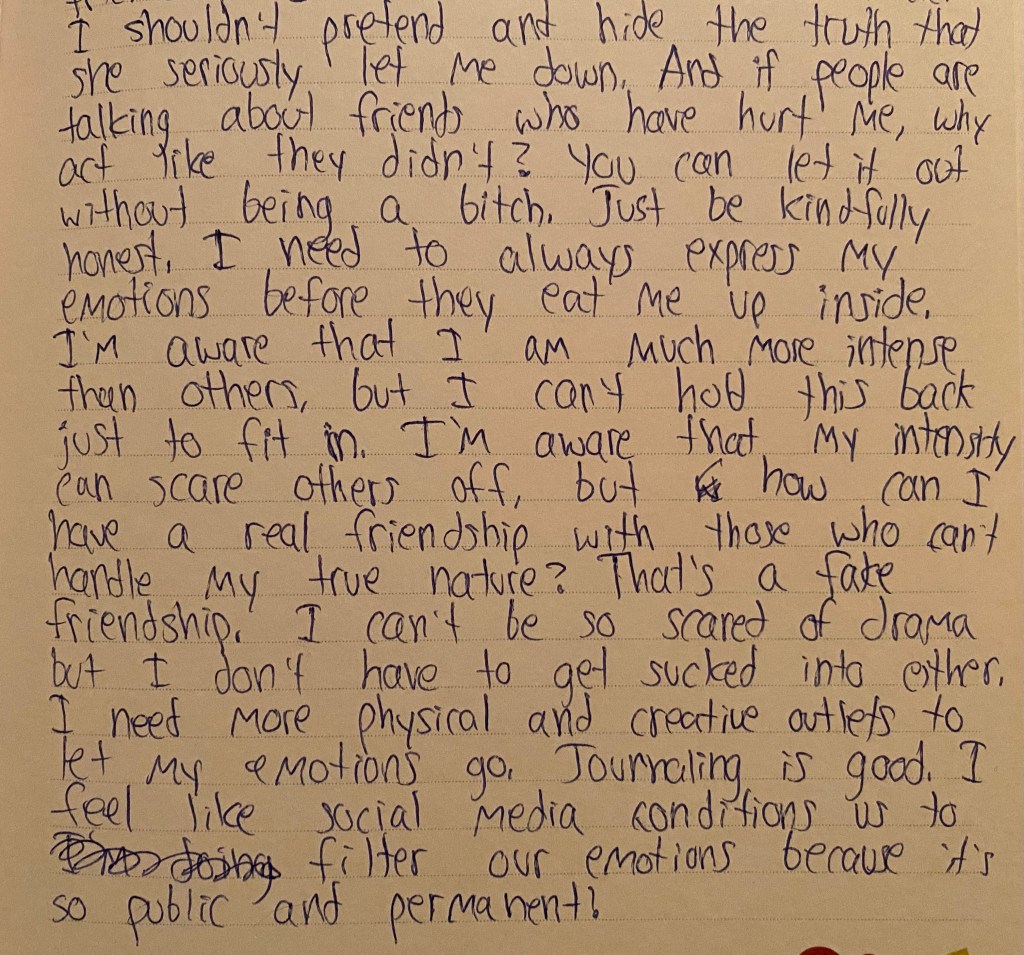 I shouldn't pretend and hide the truth that
she seriously let me down. And if people are
talking about friends who have hurt me, why
act like they didn't? You can let it out
without being a bitch. Just be kindfully
honest. I need to always express my
emotions before they eat me up inside.
I'm aware that I am much more intense
than others, but I can't hold this back
just to fit in. I'm aware that my intensity
can scare others off, but how can I
have a real friendship with those who can't
handle my true nature? That's a fake
friendship. I can't be so scared of drama
but I don't have to get sucked into either.
I need more physical and creative outlets to
let my emotions go. Journaling is good. I
feel like social media conditions us to
filter our emotions because it's
so public and permanent!